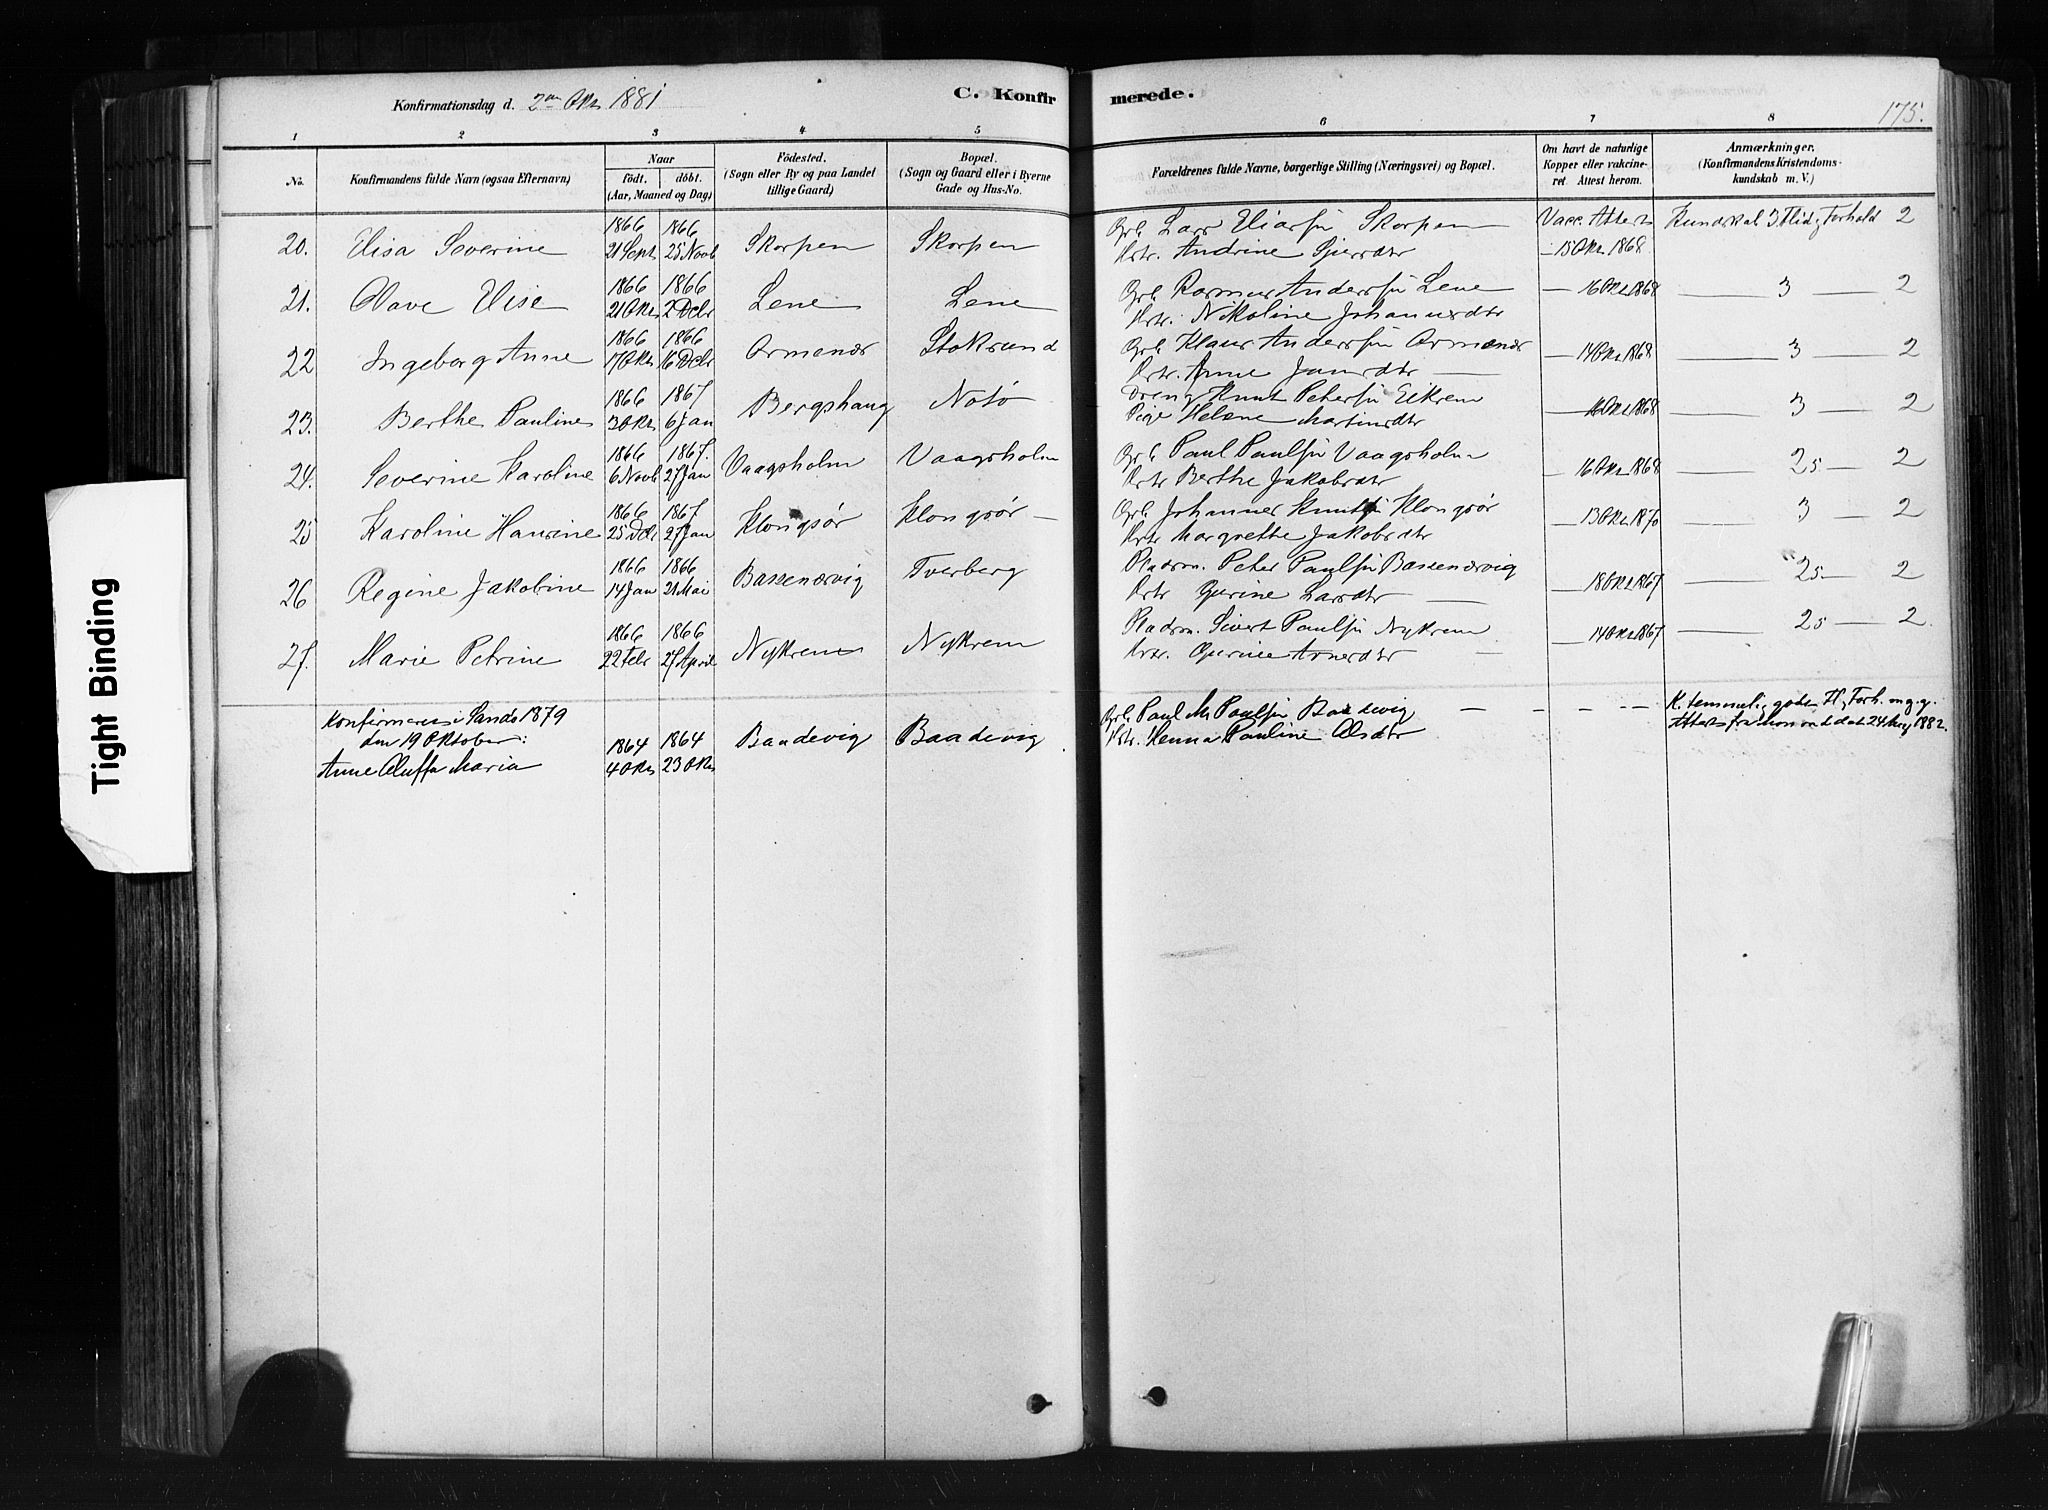 Konfirmationsdag d. 2den Okt 1881
C. Konfirmerede.
175.
1 2 3 4 5 6 7 8
No. Konfirmandens fulde Navn (ogsaa Efternavn) Naar født. døbt. (Aar, Maaned og Dag) Fødested. (Sogn eller By og paa Landet tillige Gaard) Bopæl. (Sogn og Gaard eller i Byerne Gade og Hus-No. Forældrenes fulde Navne, borgerlige Stilling (Næringsvei) og Bopæl. Om havt de naturlige Kopper eller vakcineret Attest herom. Anmærkninger. (Konfirmandens Kristendomskundskab m. V.)
20. Elisa Severine 1866 21 Sept. 1866 25 Novb Skorpen Skorpen Grb. Lars Eliassøn Skorpen Vacc. Attest Kundskab 3 Flid, Forhold 2
Hstr. Andrine Sjursdtr 15 Okt 1868
21. Olave Elise 1866 21 Okt 1866 2 Dcbr Lene Lene Grb Rasmus Anderssøn Lene 16 Okt 1868 3 2
Hstr. Nikoline Johannesdtr
22 Ingeborg Anne 1866 17 Okt 1866 16 Dcbr Ormenær Stoksund Grb Klaus Anderssøn Ormenær 14 Okt 1868 3 2
Hstr. Anne Jensdtr
23. Berthe Pauline 1866 3 Okt 1867 6 Jan Bergshaug Notø Dreng Knut Peterssøn Eikrem 16 Okt 1868 3 2
Pige Helene Martinsdtr
24. Severine Karoline 1866 6 Novb 1867. 27 Jan Vaagsholm Vaagsholm Grb Paul Paulsøn Vaagsholm 16 Okt 1868 25 2
Hstr Berthe Jakobsdtr
25 Karoline Hansine 1866 25 Dcbr 1867 27 Jan Klongsør Klongsør Grb Johannes Knutsøn Klongsør 13 Okt 1870 3 2
Hstr Margrethe Jakobsdtr
26 Regine Jakobine 1866 14 Jan 1866 21 Mai Bassenærvig Tverberg Pladsm. Peter Paulsøn Bassenærvig 18 Okt 1867 25 2
Hstr Gurine Larsdtr
27. Marie Petrine 1866 22 Febr 1866 27 April Nykrem Nykrem Pladsm. Sivert Paulsøn Nykrem 14 Okt 1867 25 2.
Hstr. Gurine Arnesdtr
Konfirmeres i Sandø 1879
den 19 Oktober:
Anne Oluffa Maria 1864 4 Okt 1864 23 Okt Baadevig Baadevig Grb Paul M. Paulsøn Baadevig K. temmelig gode, Fl. Forh. mg. g.
Hstr. Henna Pauline Olsdtr Attest fra dat 24 Aug 1882.
Tight Binding